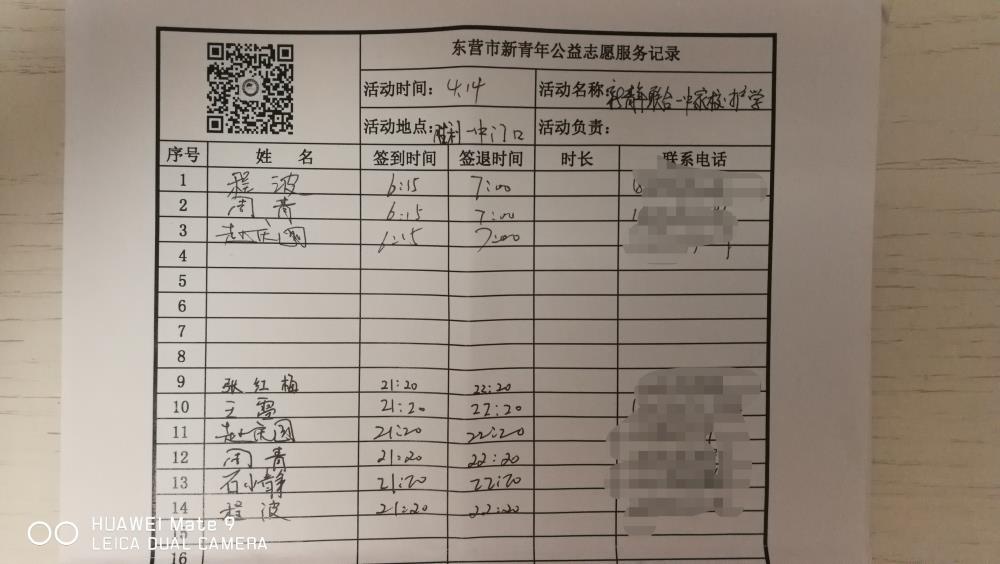 东营市新青年公益志愿服务记录
活动时间: 4.14 活动名称: 新青年联合一中家校护学
活动地点: 胜利一中门口 活动负责:
序号 姓 名 签到时间 签退时间 时长 联系电话
1 程波 6:15 7:00
2 周青 6:15 7:00
3 赵庆国 6:15 7:00
4
5
6
7
8
9 张红梅 21:20 22:20
10 王雪 21:20 22:20
11 赵庆国 21:20 22:20
12 周青 21:20 22:20
13 石小静 21:20 22:20
14 程波 21:20 22:20
15
16
HUAWEI Mate 9
LEICA DUAL CAMERA